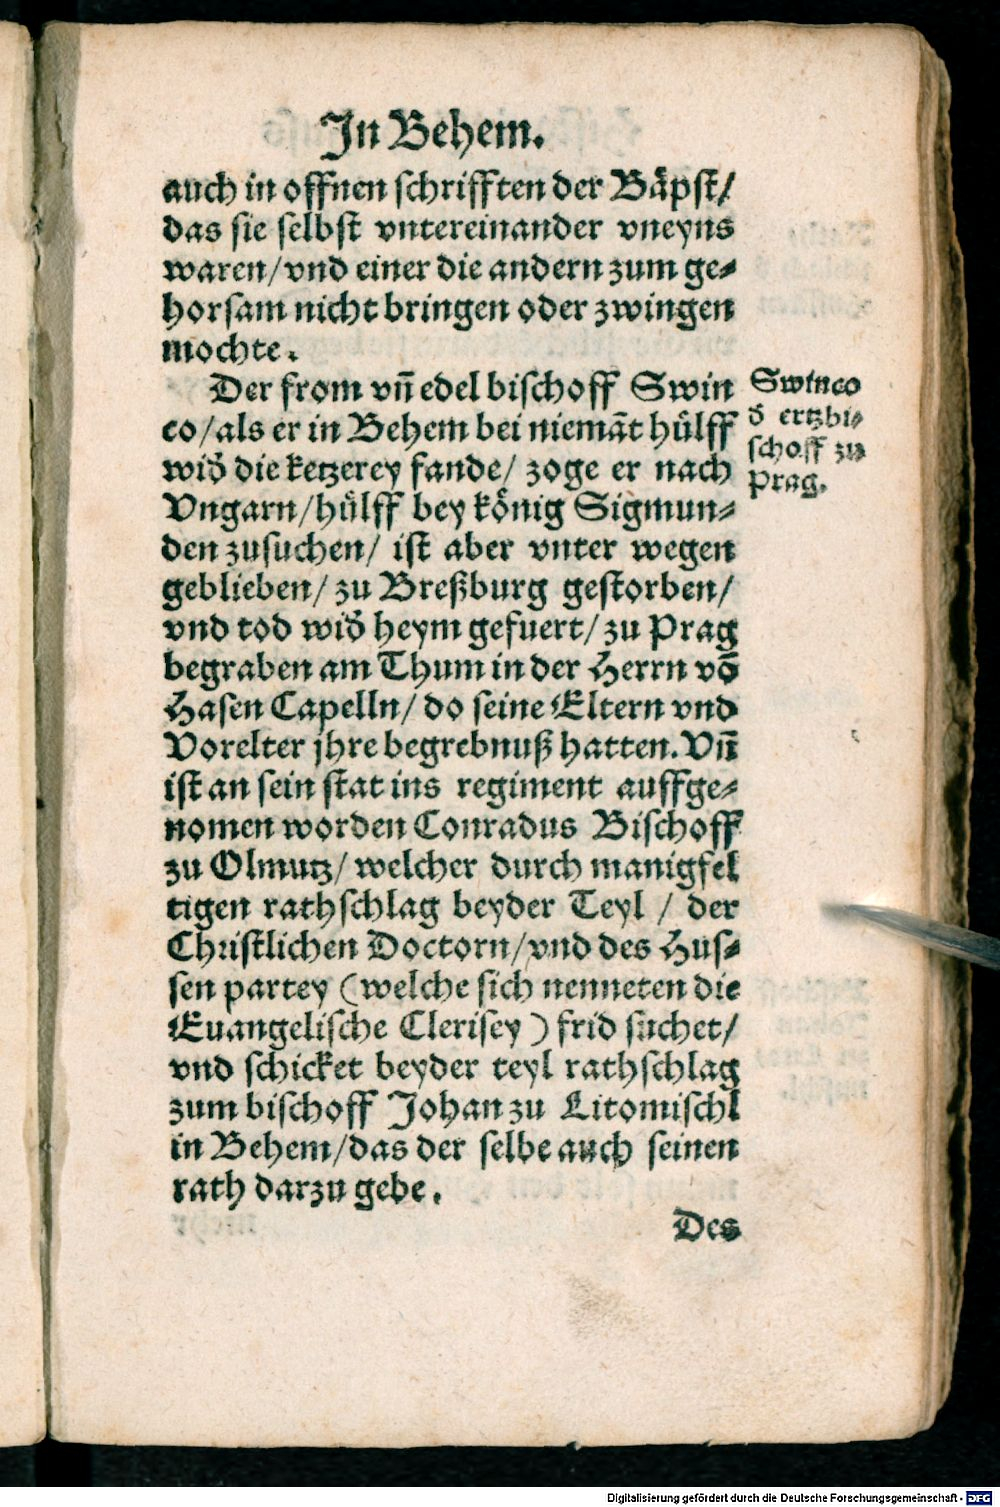 In Behem.
auch in offnen schrifften der Bäpst/
das sie selbst vntereinander vneyns
waren/vnd einer die andern zum ge⸗
horsam nicht bringen oder zwingen
mochte.
Der from vn̄ edel bischoff Swin
co/als er in Behem bei niemāt hülff
wid̄ die ketzerey fande/ zoge er nach
Vngarn/hülff bey könig Sigmun⸗
den zusuchen/ ist aber vnter wegen
geblieben/ zu Breßburg gestorben/
vnd tod wid̄ heym gefuert/ zu Prag
begraben am Thum in der Herrn vō
Hasen Capelln/ do seine Eltern vnd
Vorelter jhre begrebnuß hatten. Vn̄
ist an sein stat ins regiment auffge⸗
nomen worden Conradus Bischoff
zu Olmutz/ welcher durch manigfel
tigen rathschlag beyder Teyl / der
Christlichen Doctorn/vnd des Hus⸗
sen partey (welche sich nenneten die
Euangelische Clerisey) frid suchet/
vnd schicket beyder teyl rathschlag
zum bischoff Johan zu Litomischl
in Behem/das der selbe auch seinen
rath darzu gebe.
Des
Swinco
d̄ ertzbi⸗
schoff zu
Prag.
Digitalisierung gefördert durch die Deutsche Forschungsgemeinschaft - DFG